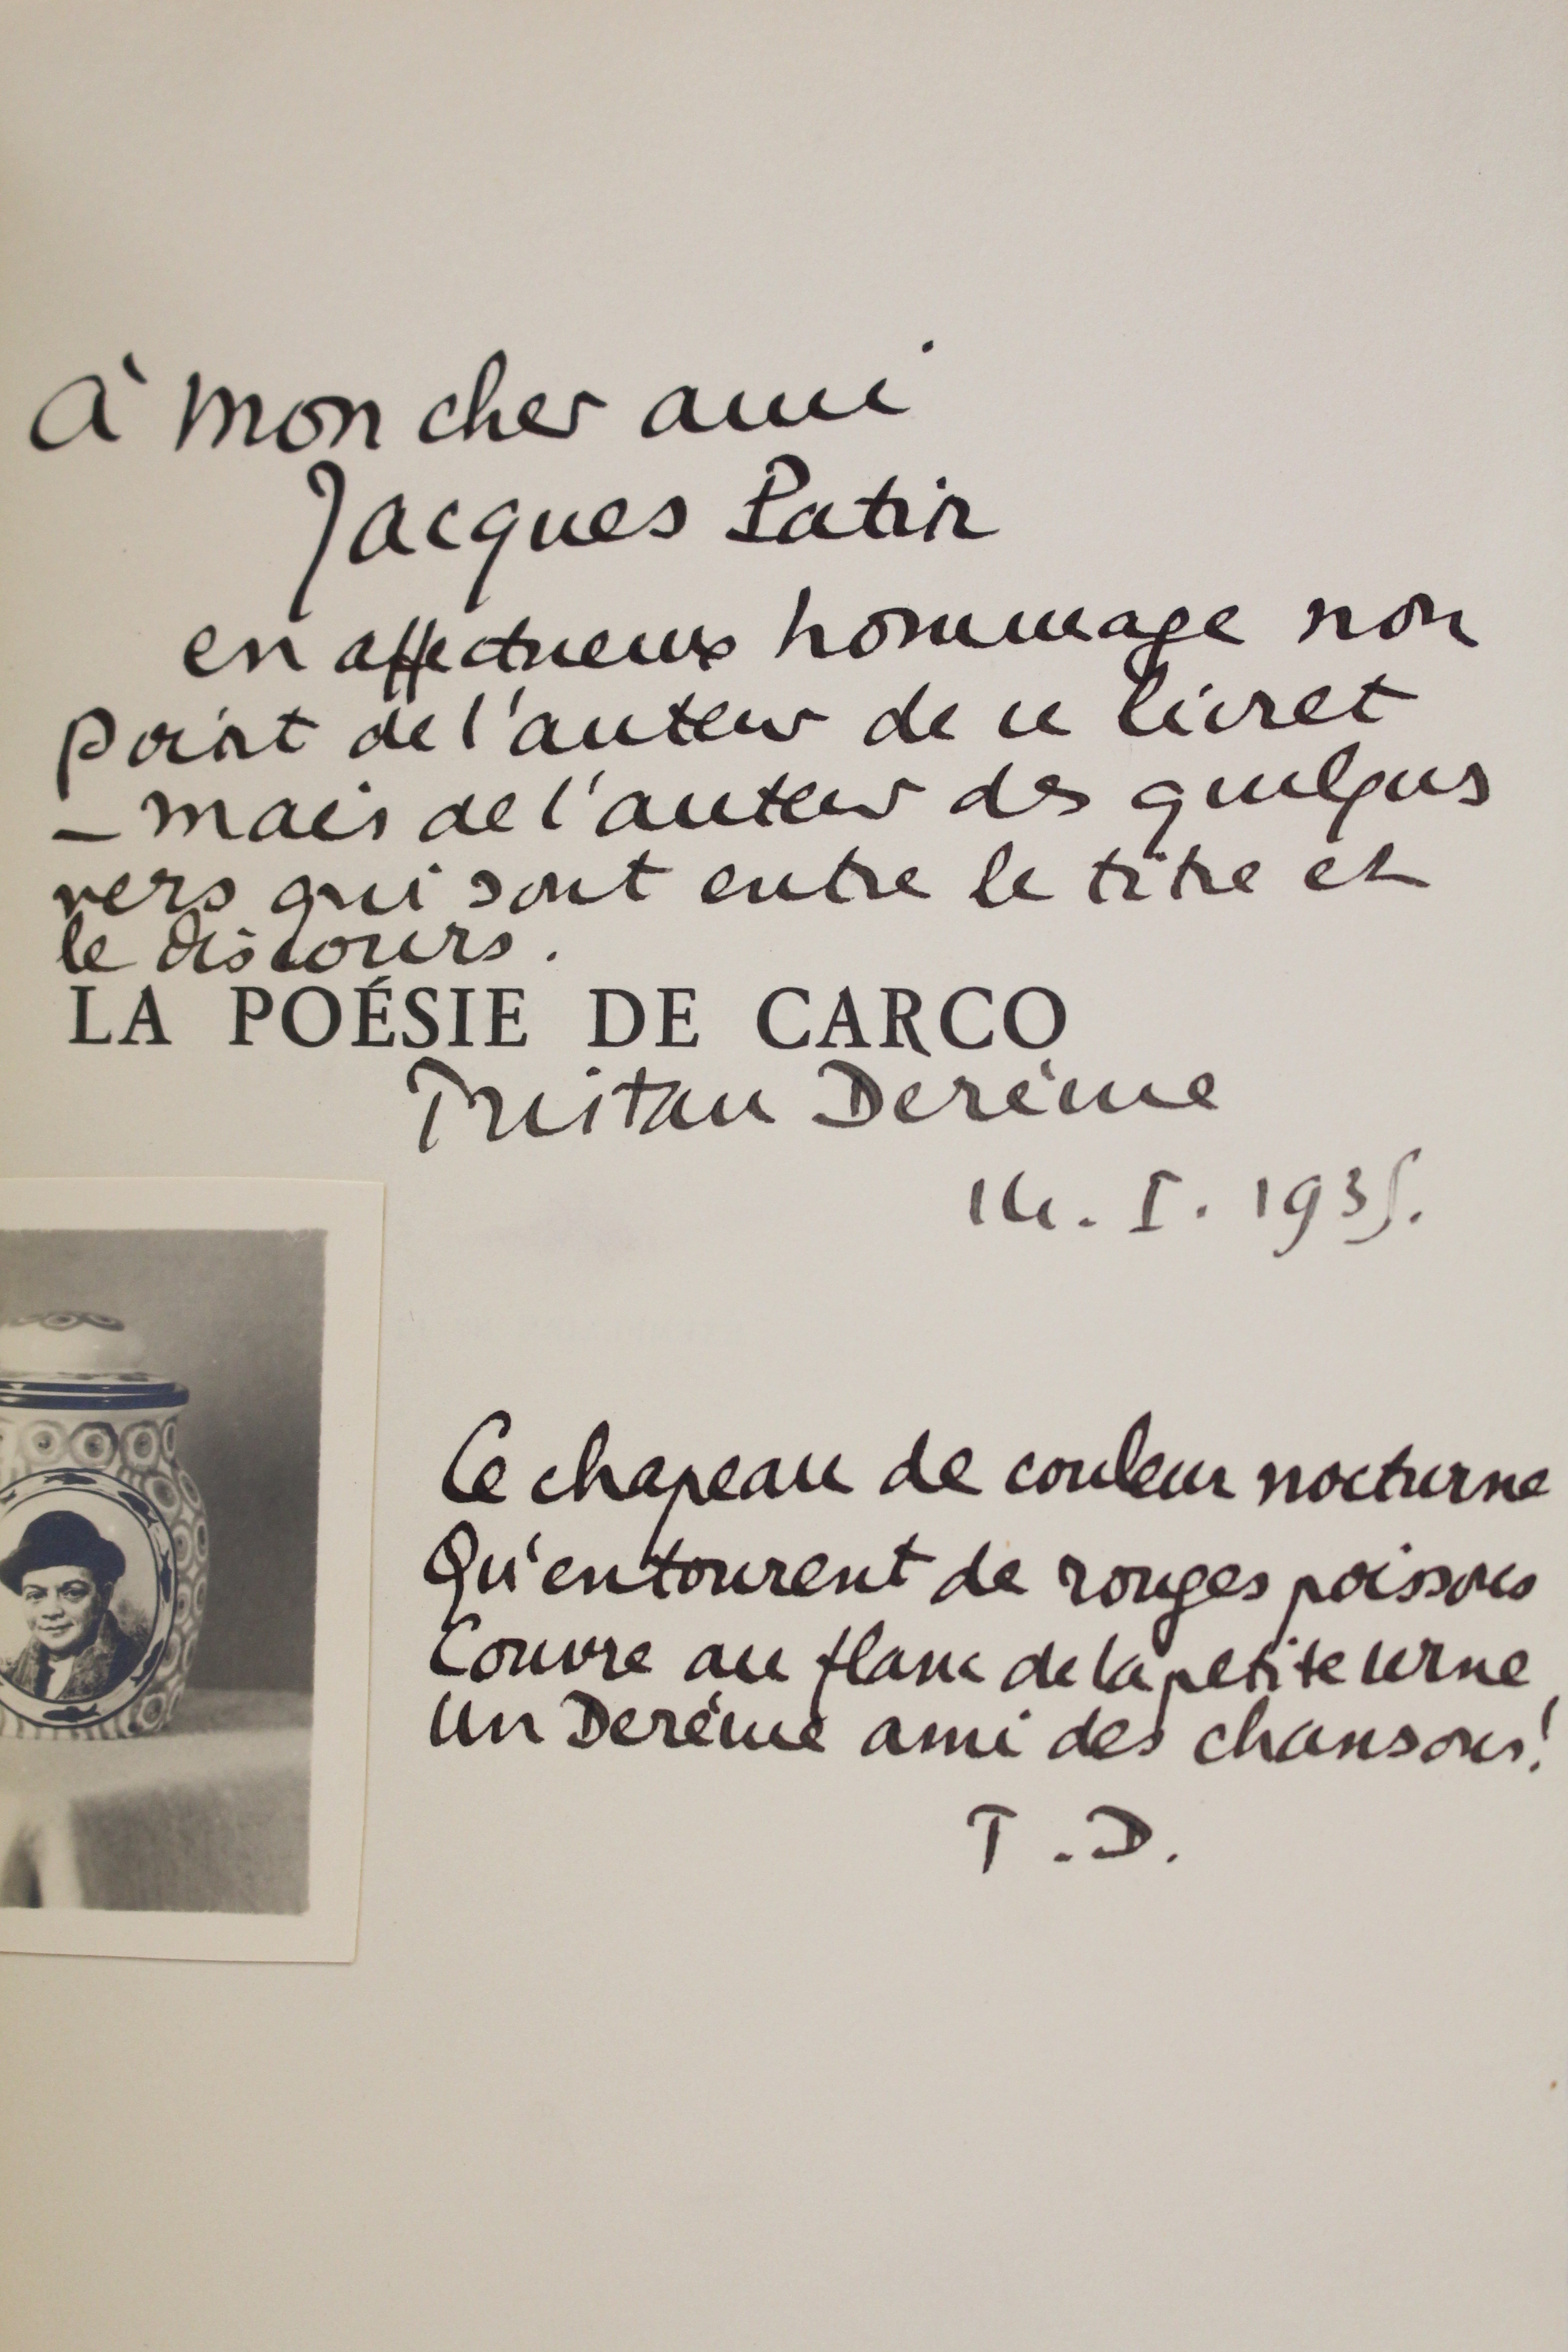 à mon cher ami
Jacques Patin
en affectueux hommage non
point de l'auteur de ce livret
– mais de l'auteur des quelques
vers qui sont entre le titre et
le discours.
LA POÉSIE DE CARCO
Tristan Derème
14. I. 1935.
Ce chapeau de couleur nocturne
Qu'entourent de rouges poissons
Couvre au flanc de la petite urne,
Un Derème ami des chansons!
T.D.